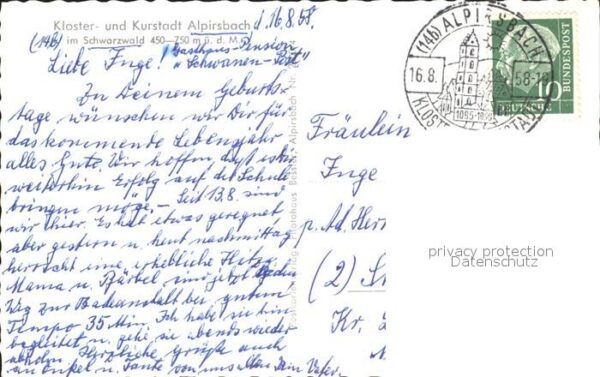 Kloster- und Kurstadt Alpirsbach
d. 16.8.58.
(14b) im Schwarzwald 450–750 m ü. d. M.
Gasthaus-Pension
Liebe Inge! "Schwanen-Post"
Zu Deinem Geburts-
tage wünschen wir Dir für
das kommende Lebensjahr
alles Gute. Wir hoffen, daß es
weiterhin Erfolg auf der Schule
bringen möge. – Seit 13.8. sind
wir hier. Es hat etwas geregnet
aber gestern u. heut nachmittag
herrscht eine erhebliche Hitze.
Mama u. Bärbel sind jetzt
Weg zur Badeanstalt bei gutem
Tempo 35 Min. Ich habe sie hin
begleitet u. gehe sie abends wieder
abholen. Herzliche Grüße auch
an Onkel u. Tante von uns allen Dein Vater.
(14b) ALPIRSBACH
16.8. 58-18
KLOSTER
1095-1895
10
DEUTSCHE
BUNDESPOST
Fräulein
Inge
p. Ad. Herr
(2)
Kr.
privacy protection
Datenschutz
Alpirsbach